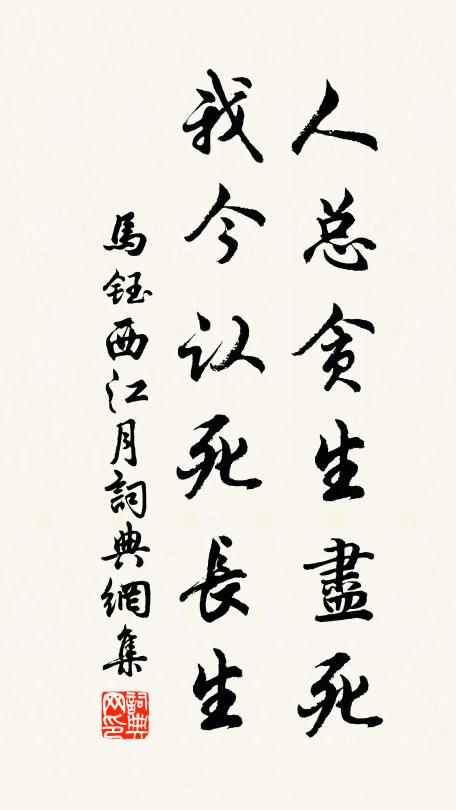 人总贪生盡死
我今认死長生
馬鈺西江月詞典網集
詞典網印